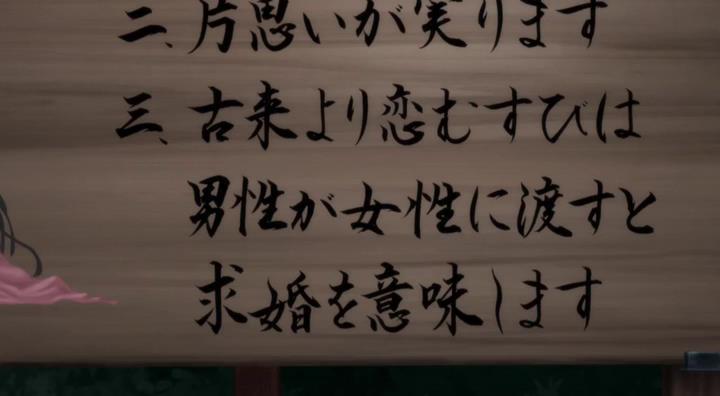 二、片思いが実ります
三、古来より恋むすびは
男性が女性に渡すと
求婚を意味します